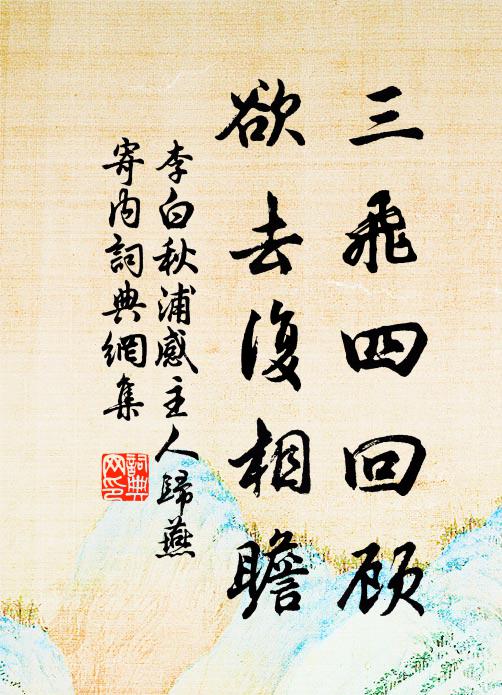 三飛四回顾
欲去復相瞻
李白秋浦感主人歸燕
寄内詞典網集
詞典网印